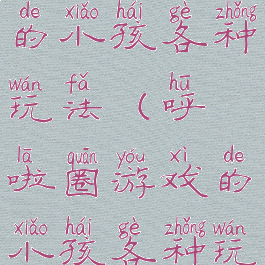 de xiǎo hái gè zhǒng
的小孩各种
wán fǎ hū
玩法（呼
lā quān yóu xì de
啦圈游戏的
xiǎo hái gè zhǒng wán
小孩各种玩